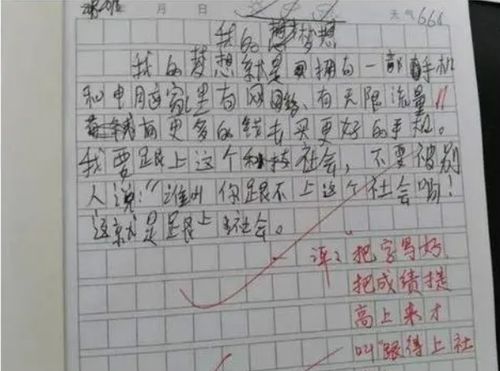 月 日 天气666
我的梦想
我的梦想就是拥有一部手机
和电脑家里有网络,有无限流量!!
有更多的钱去买更好的手机。
我要跟上这个科技社会,不要被别
人说:"你跟不上这个社会哟!
这就是跟上社会。
评:把字写好,
把成绩提
高上来才
叫"跟得上社